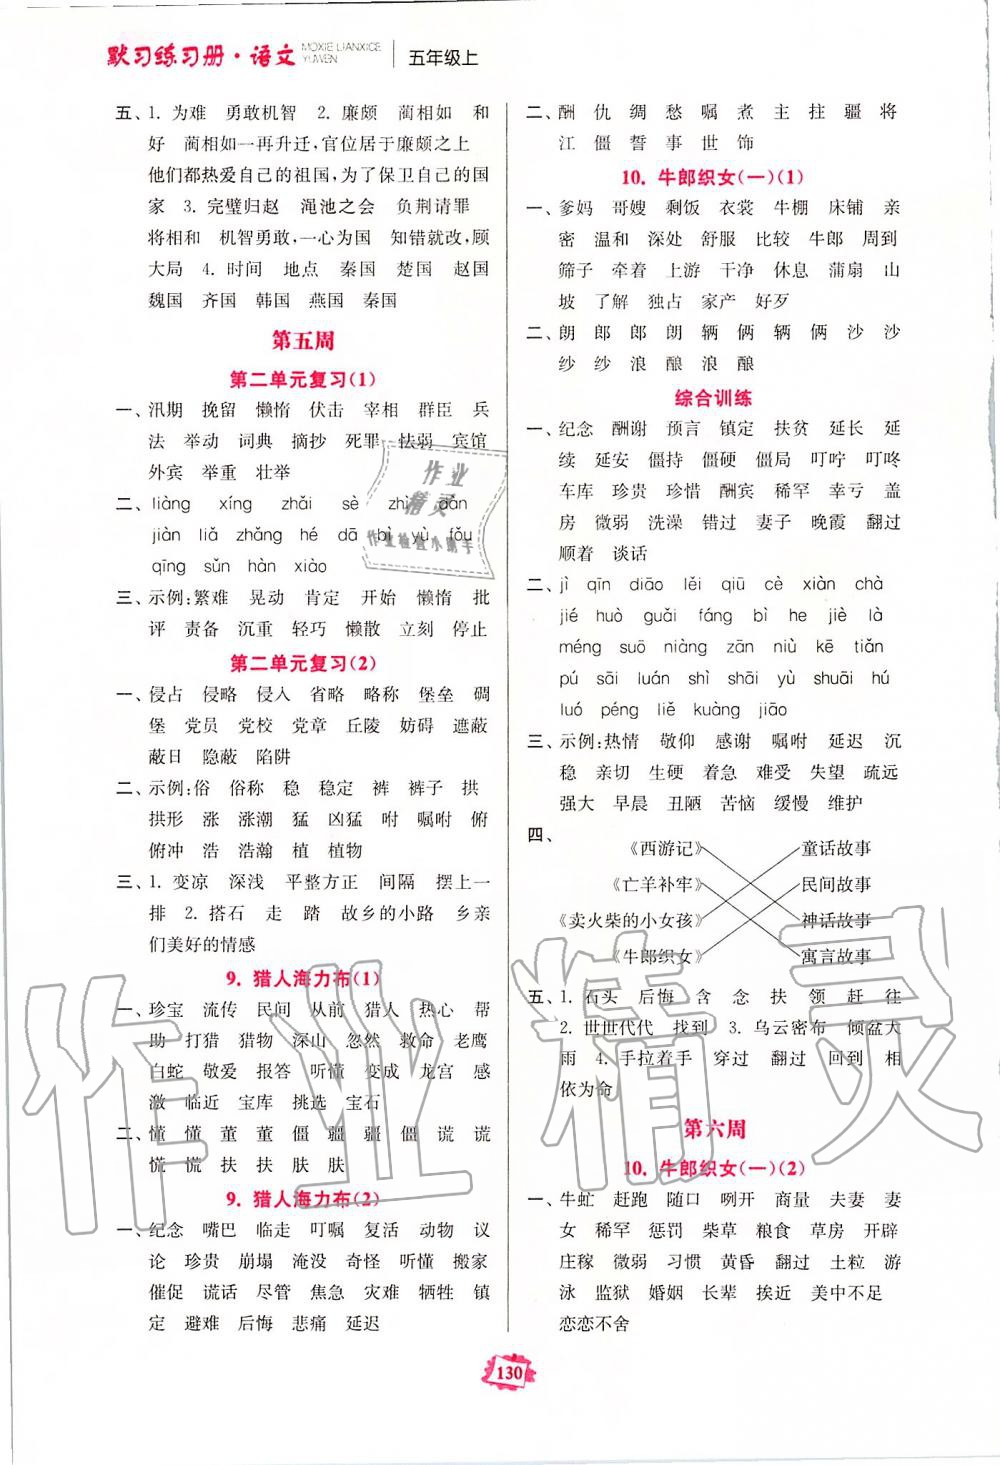 默习练习册·语文 MOXIE LIANXICE YUWEN 五年级上
五、1. 为难 勇敢机智 2. 廉颇 蔺相如 和
好 蔺相如一再升迁,官位居于廉颇之上
他们都热爱自己的祖国,为了保卫自己的国
家 3. 完璧归赵 渑池之会 负荆请罪
将相和 机智勇敢,一心为国 知错就改,顾
大局 4. 时间 地点 秦国 楚国 赵国
魏国 齐国 韩国 燕国 秦国
第五周
第二单元复习(1)
一、汛期 挽留 懒惰 伏击 宰相 群臣 兵
法 举动 词典 摘抄 死罪 怯弱 宾馆
外宾 举重 壮举
二、liàng xíng zhǎi sè zhì dān
jiàn liǎ zhǎng hé dā bì yù fǒu
qīng sǔn hàn xiào
三、示例:繁难 晃动 肯定 开始 懒惰 批
评 责备 沉重 轻巧 懒散 立刻 停止
第二单元复习(2)
一、侵占 侵略 侵入 省略 略称 堡垒 碉
堡 党员 党校 党章 丘陵 妨碍 遮蔽
蔽日 隐蔽 陷阱
二、示例:俗 俗称 稳 稳定 裤 裤子 拱
拱形 涨 涨潮 猛 凶猛 咐 嘱咐 俯
俯冲 浩 浩瀚 植 植物
三、1. 变凉 深浅 平整方正 间隔 摆上一
排 2. 搭石 走 踏 故乡的小路 乡亲
们美好的情感
9. 猎人海力布(1)
一、珍宝 流传 民间 从前 猎人 热心 帮
助 打猎 猎物 深山 忽然 救命 老鹰
白蛇 敬爱 报答 听懂 变成 龙宫 感
激 临近 宝库 挑选 宝石
二、懂 懂 董 董 僵 疆 疆 僵 谎 谎
慌 慌 扶 扶 肤 肤
9. 猎人海力布(2)
一、纪念 嘴巴 临走 叮嘱 复活 动物 议
论 珍贵 崩塌 淹没 奇怪 听懂 搬家
催促 谎话 尽管 焦急 灾难 牺牲 镇
定 避难 后悔 悲痛 延迟
二、酬 仇 绸 愁 嘱 煮 主 拄 疆 将
江 僵 誓 事 世 饰
10. 牛郎织女(一)(1)
一、爹妈 哥嫂 剩饭 衣裳 牛棚 床铺 亲
密 温和 深处 舒服 比较 牛郎 周到
筛子 牵着 上游 干净 休息 蒲扇 山
坡 了解 独占 家产 好歹
二、朗 郎 郎 朗 辆 俩 辆 俩 沙 沙
纱 纱 浪 酿 浪 酿
综合训练
一、纪念 酬谢 预言 镇定 扶贫 延长 延
续 延安 僵持 僵硬 僵局 叮咛 叮咚
车库 珍贵 珍惜 酬宾 稀罕 幸亏 盖
房 微弱 洗澡 错过 妻子 晚霞 翻过
顺着 谈话
二、jì qīn diāo lěi qiū cè xiàn chà
jié huò guǎi fáng bì he jiè là
méng suō niàng zān niù kē tiǎn
pú sāi luán shì shāi yù shuāi hú
luó péng liě kuàng jiāo
三、示例:热情 敬仰 感谢 嘱咐 延迟 沉
稳 亲切 生硬 着急 难受 失望 疏远
强大 早晨 丑陋 苦恼 缓慢 维护
四、
《西游记》 童话故事
《亡羊补牢》 民间故事
《卖火柴的小女孩》 神话故事
《牛郎织女》 寓言故事
五、1. 石头 后悔 含 念 扶 领 赶 往
2. 世世代代 找到 3. 乌云密布 倾盆大
雨 4. 手拉着手 穿过 翻过 回到 相
依为命
第六周
10. 牛郎织女(一)(2)
一、牛虻 赶跑 随口 咧开 商量 夫妻 妻
女 稀罕 惩罚 柴草 粮食 草房 开辟
庄稼 微弱 习惯 黄昏 翻过 土粒 游
泳 监狱 婚姻 长辈 挨近 美中不足
恋恋不舍
130
作业精灵
作业检查小助手
作业精灵